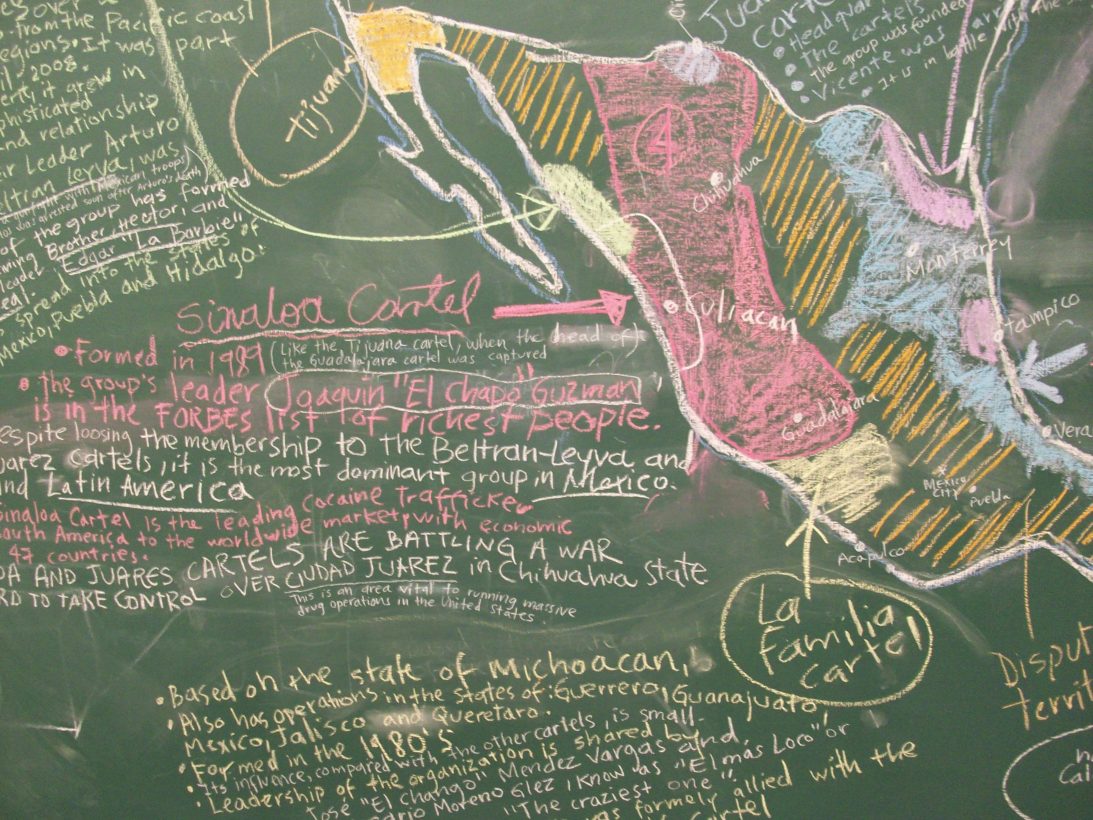 over a
from the Pacific coast
regions. It was part
2008.
it grew in
phisticated
and relationship
Leader Arturo
ltran leyva, was
Mexican troops)
was arrested soon after Arturo's death
of the group has formed
Brother, Hector, and
leader Edgar "La Barbie"
spread into the states of
Mexico, Puebla and Hidalgo.
Tijuana
Juar
Cartel
• Headquar
• The cartels
• The group was founded
• Vicente was
• It is in battle
4
Chihuahua
Monterrey
Culiacan
Tampico
Guadalajara
Vera
Mexico
City
Puebla
Acapulco
Sinaloa Cartel
• Formed in 1989 (Like the Tijuana cartel, when the head of
the Guadalajara cartel was captured
• the group's leader Joaquin "El Chapo" Guzman
is in the FORBES list of richest people.
espite loosing the membership to the Beltran-Leyva and
uarez cartels, it is the most dominant group in Mexico.
and Latin America
Sinaloa Cartel is the leading cocaine trafficker
outh America to the worldwide market, with economic
47 countries.
OA AND JUARES CARTELS ARE BATTLING A WAR
RD TO TAKE CONTROL OVER CIUDAD JUAREZ in Chihuahua State
This is an area vital to running massive
drug operations in the United States.
La
Familia
Cartel
Disput
territ
• Based on the state of Michoacan,
• Also has operations in the states of: Guerrero, Guanajuato,
Mexico, Jalisco and Queretaro.
• Formed in the 1980's
• Its influnce, compared with the other cartels, is small.
• Leadership of the organization is shared by
José "El chango" Mendez Vargas and
Moreno Glez, know as "El mas Loco" or
"The craziest one".
was formely allied with the
Cartel